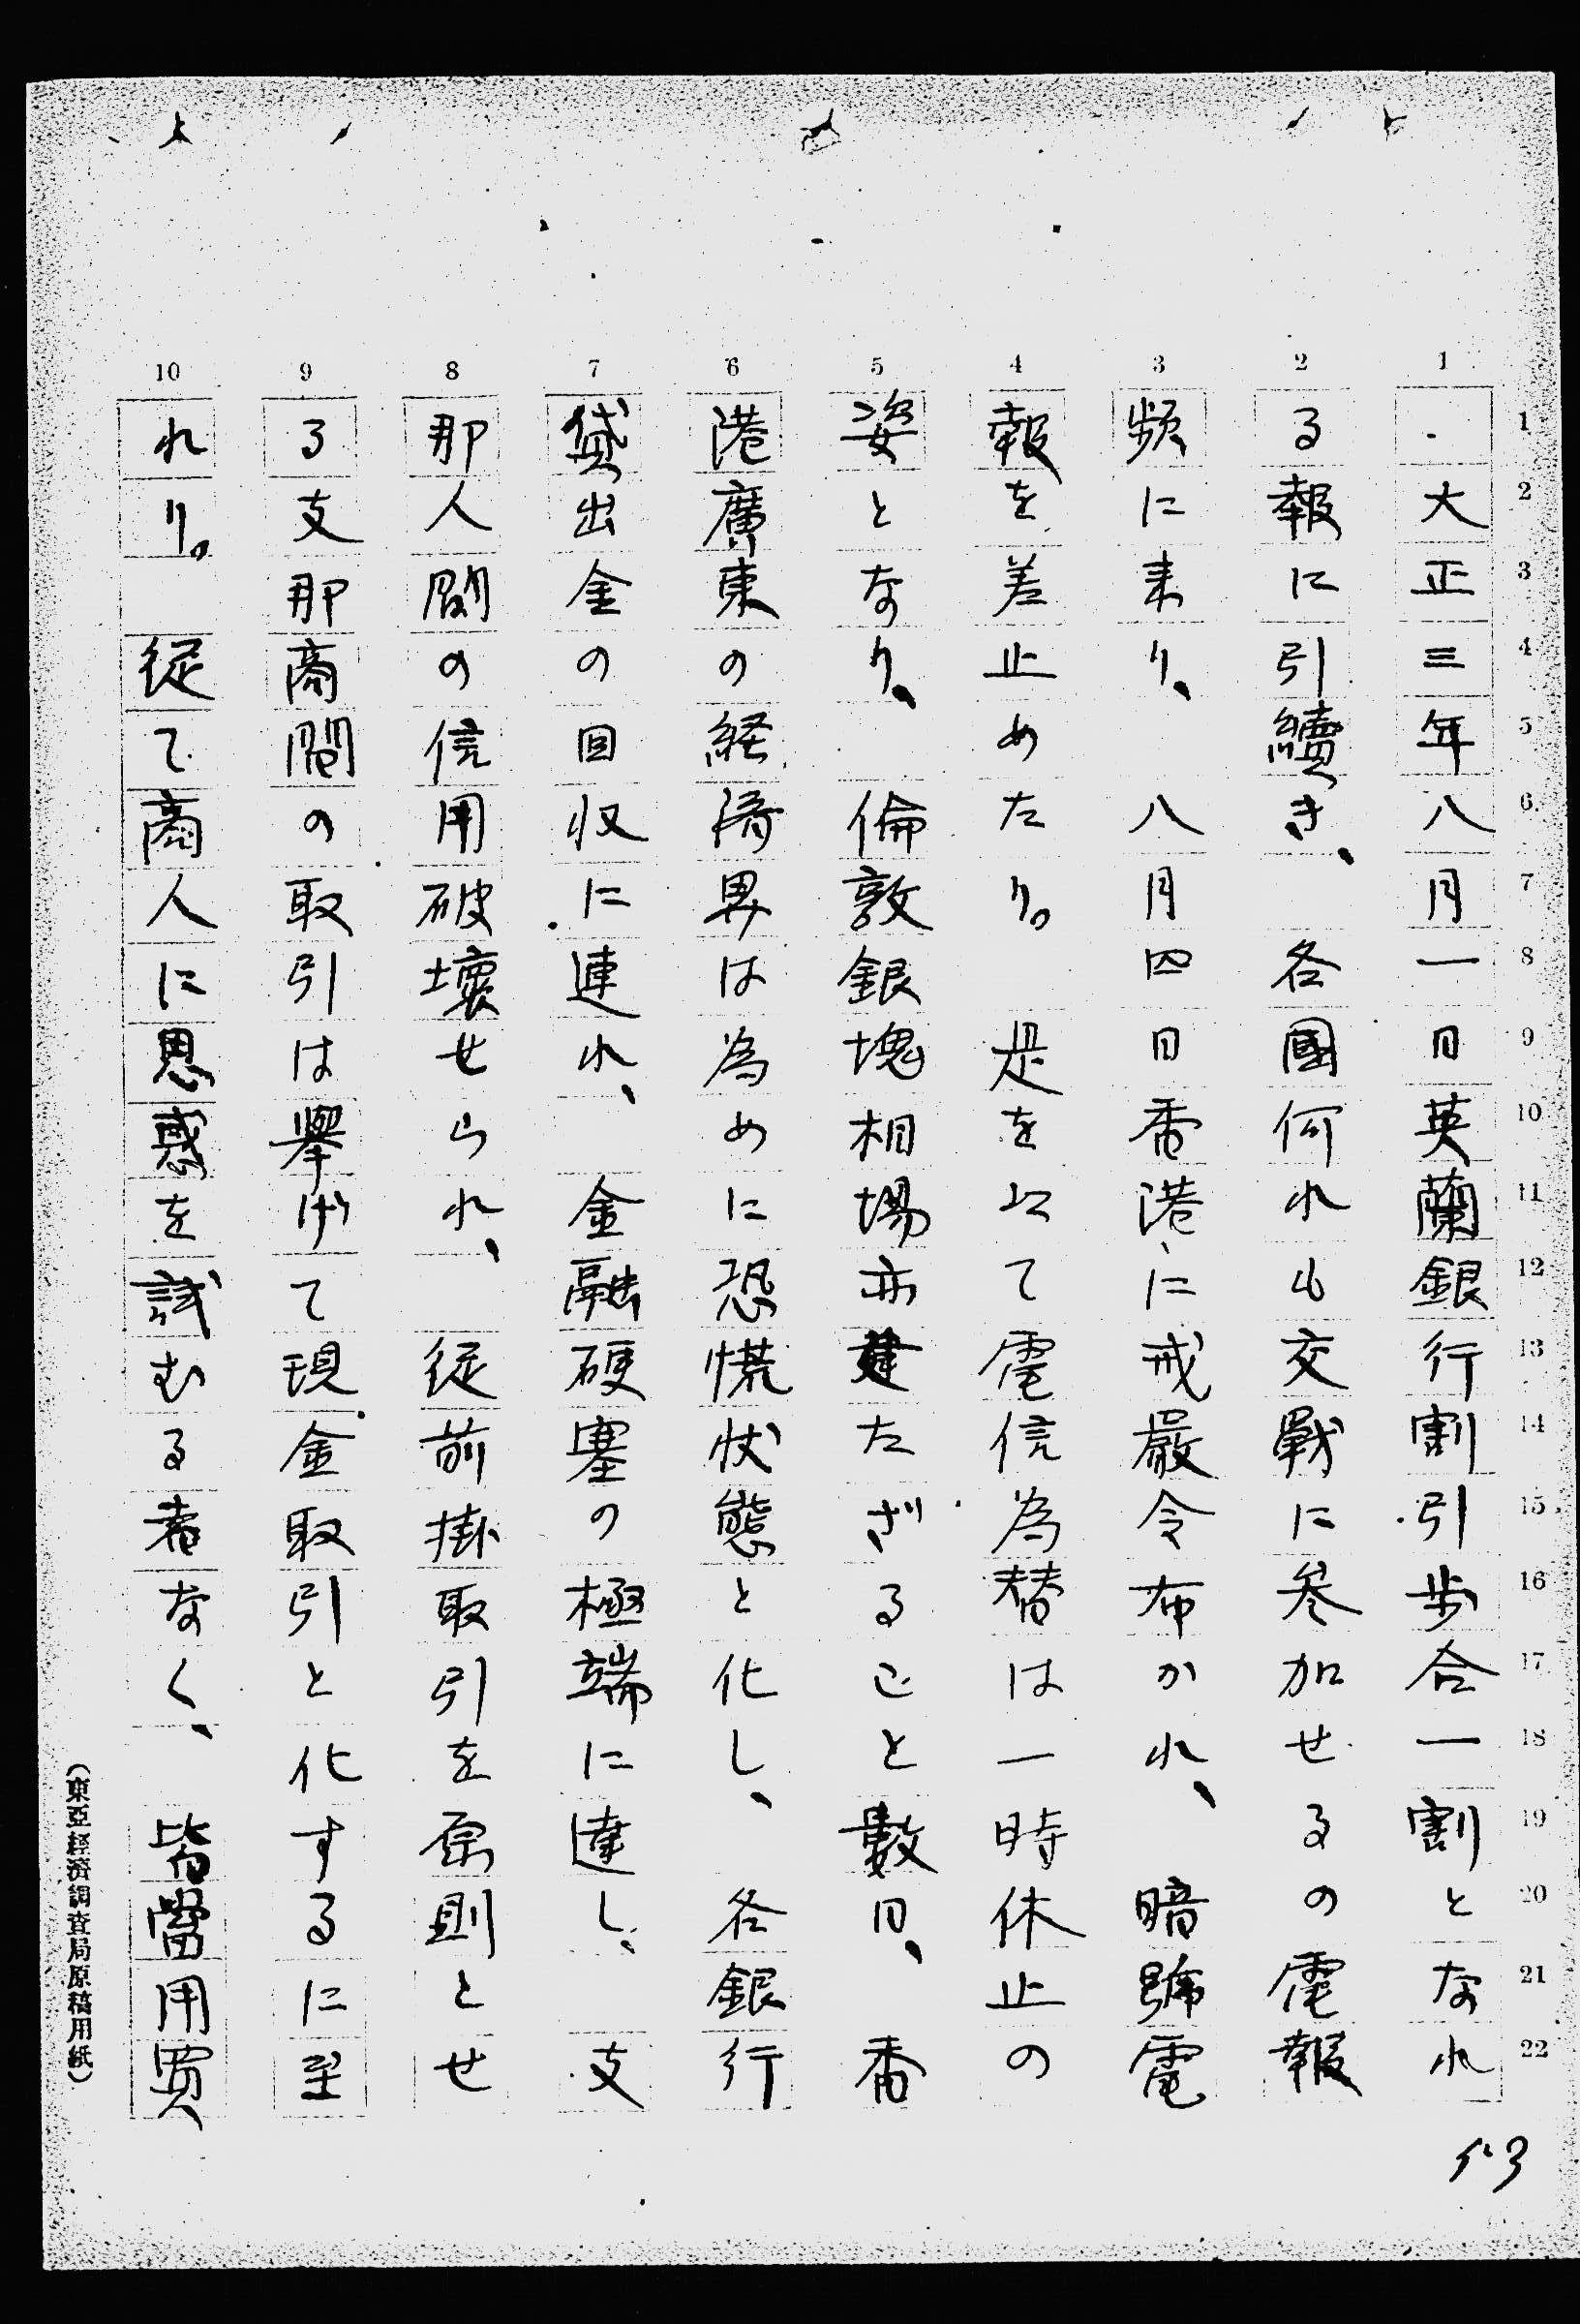 大正三年八月一日英蘭銀行割引歩合一割となれ
る報に引續き、各國何れも交戰に参加せるの電報
頻に来り、八月四日香港に戒嚴令布かれ、暗號電
報を差止めたり。是を以て電信為替は一時休止の
姿となり、倫敦銀塊相場亦建たざること數日、香
港廣東の経済界は為めに恐慌状態と化し、各銀行
貸出金の回収に連れ、金融硬塞の極端に達し、支
那人間の信用破壞せられ、従前掛取引を原則とせ
る支那商間の取引は擧げて現金取引と化するに至
れり。従て商人に思惑を試むる者なく、皆當用買
(東亞經濟調査局原稿用紙)
53